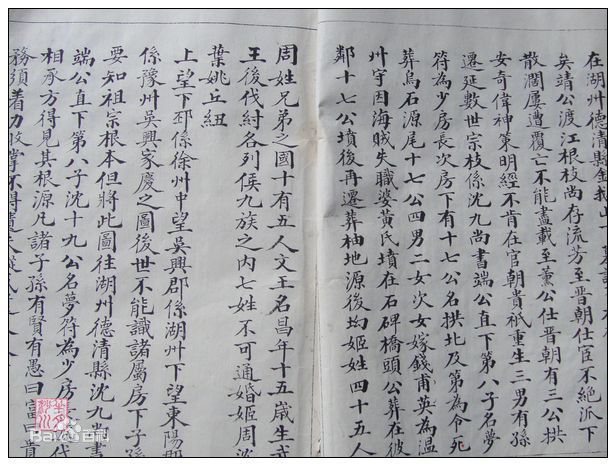 在湖州德清縣
矣靖公渡江根枝尚存流芳至晉朝仕宦不絕派下
散濶屢遭覆亡不能盡載至薰公仕晉朝有三公拱
安奇偉神策明經不肯在官朝貴祇重生三男有孫
遷延數世宗枝係沈九尚書端公直下第八子名夢
符為少房長次房下有十七公名拱北及第為令死
葬烏石源尾十七公四男二女次女嫁錢甫英為溫
州宇因海賊失職婆黃氏墳在石碑橋頭公葬在彼
鄰十七公墳後再遷葬柚地源後均姬姓四十五人
周姓兄弟之國十有五人文王名昌年十五歲生武
王後伐紂各列侯九族之內七姓不可通婚姬周沈
葉姚丘紐
上望下邳係徐州中望吳興郡係湖州下望東陽郡
係豫州吳興家慶之圖後世不能識諸屬房下子孫
要知祖宗根本但將此圖往湖州德清縣沈九尚書
端公直下第八子沈十九公名夢符為少房長
相承方得見其根源凡諸子孫有賢有愚曰富曰貴
務須着力收掌不得遺失
Bai百科